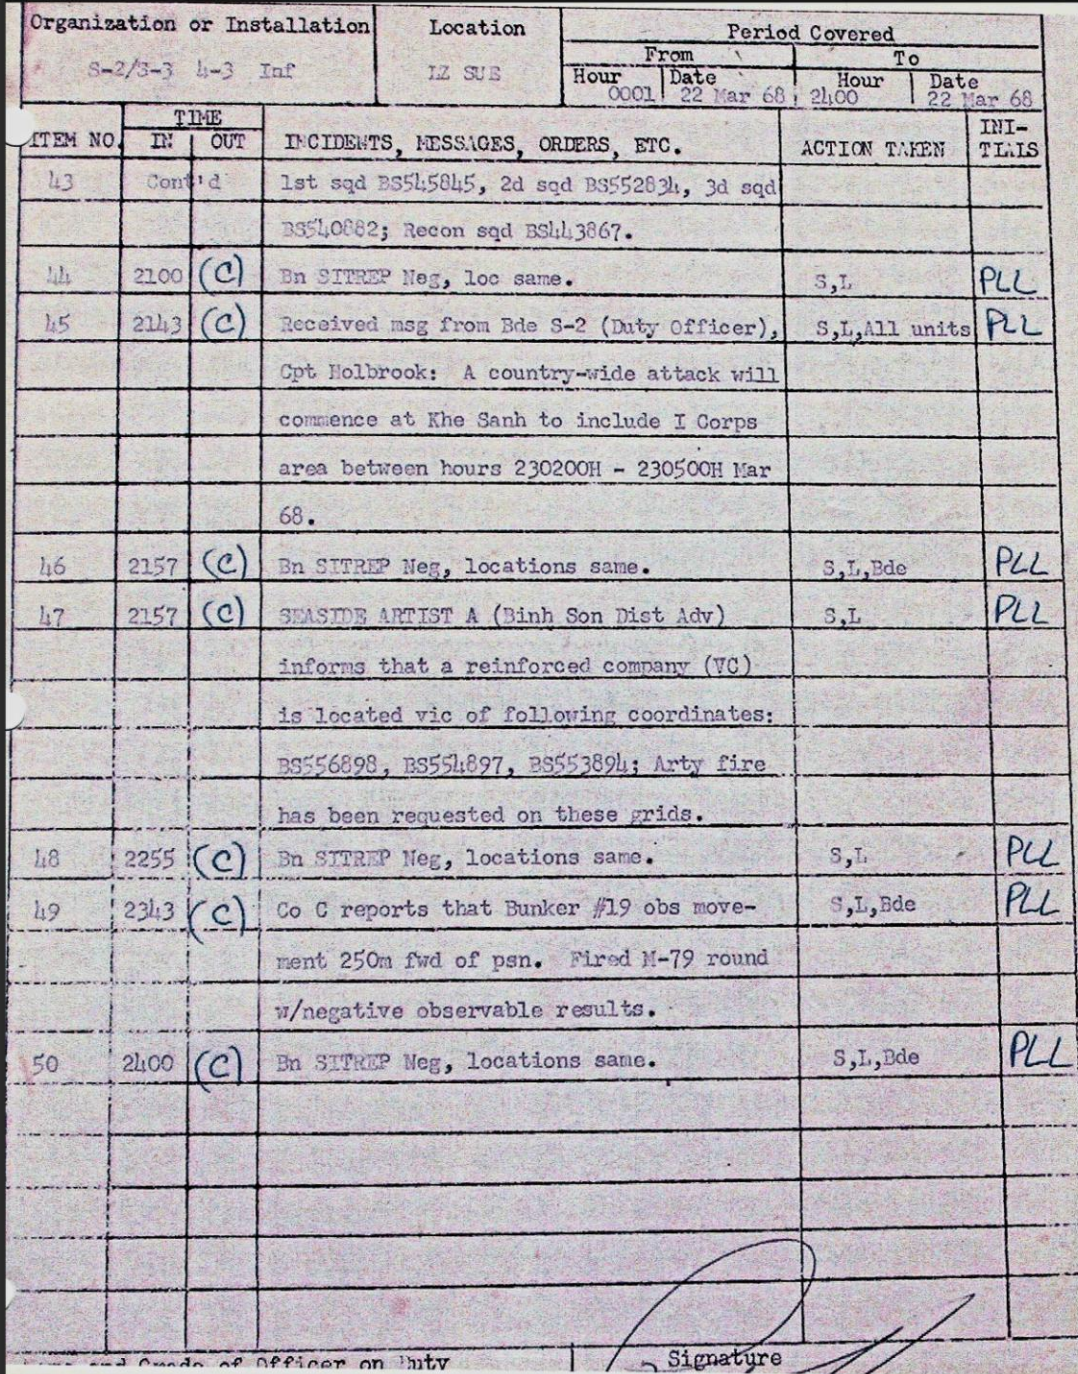 Organization or Installation Location Period Covered
From To
S-2/S-3 4-3 Inf LZ SUE Hour Date Hour Date
0001 22 Mar 68 2400 22 Mar 68
TIME
ITEM NO. IN OUT INCIDENTS, MESSAGES, ORDERS, ETC. ACTION TAKEN INI-
TIALS
43 Cont'd 1st sqd BS545845, 2d sqd BS552834, 3d sqd
BS540882; Recon sqd BS443867.
44 2100 (C) Bn SITREP Neg, loc same. S,L PLL
45 2143 (C) Received msg from Bde S-2 (Duty Officer), S,L,All units PLL
Cpt Holbrook: A country-wide attack will
commence at Khe Sanh to include I Corps
area between hours 230200H - 230500H Mar
68.
46 2157 (C) Bn SITREP Neg, locations same. S,L,Bde PLL
47 2157 (C) SEASIDE ARTIST A (Binh Son Dist Adv) S,L PLL
informs that a reinforced company (VC)
is located vic of following coordinates:
BS556898, BS554897, BS553894; Arty fire
has been requested on these grids.
48 2255 (C) Bn SITREP Neg, locations same. S,L PLL
49 2343 (C) Co C reports that Bunker #19 obs move- S,L,Bde PLL
ment 250m fwd of psn. Fired M-79 round
w/negative observable results.
50 2400 (C) Bn SITREP Neg, locations same. S,L,Bde PLL
and Grade of Officer on Duty Signature